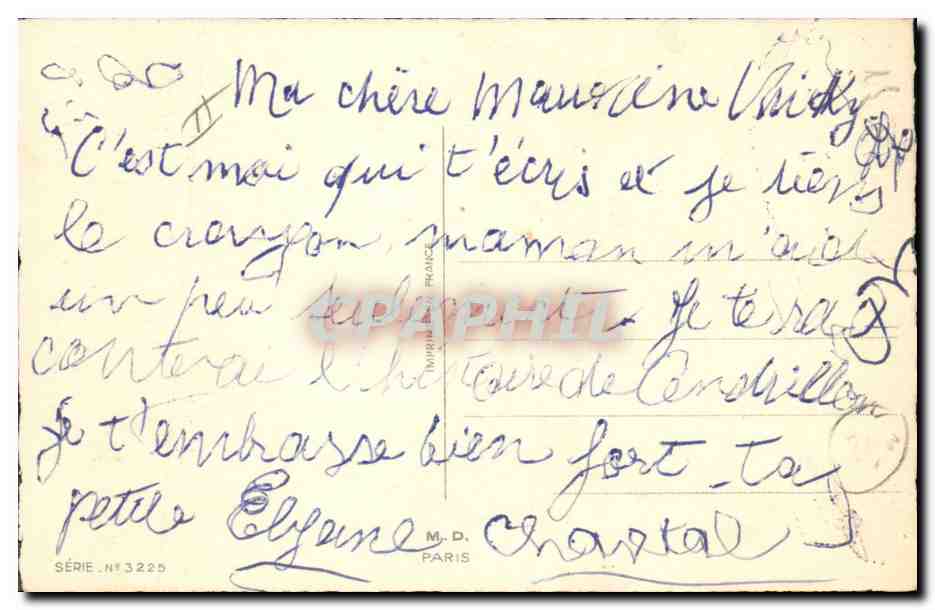 II
Ma chère Marraine Vicky
C'est moi qui t'écris et je tiens
le crayon maman m'aide
un peu seulement. Je te ra
conterai l'histoire de Cendrillon
je t'embrasse bien fort ta
petite Elyane Chantal
IMPRIMÉ EN FRANCE
CPAPHIL
M. D.
PARIS
SÉRIE. N° 3225